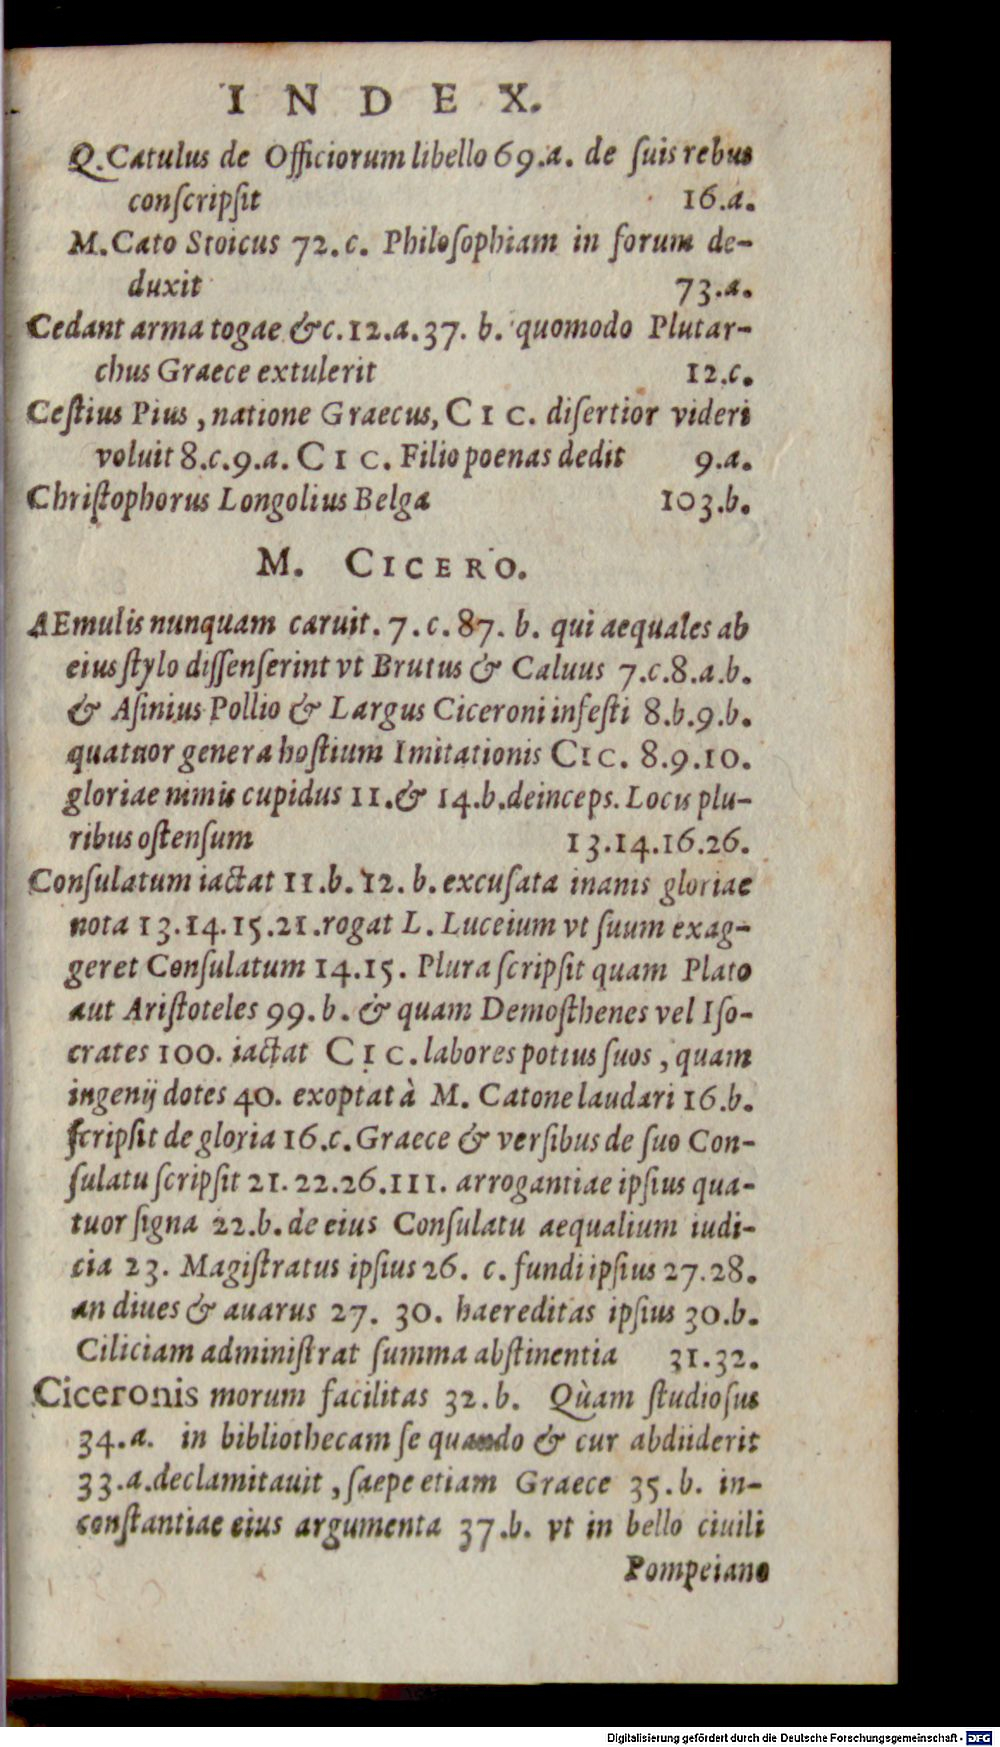 INDEX.
Q. Catulus de Officiorum libello 69.a. de ſuis rebus
conſcripſit 16.a.
M. Cato Stoicus 72.c. Philoſophiam in forum de-
duxit 73.a.
Cedant arma togae &c. 12.a. 37. b. quomodo Plutar-
chus Graece extulerit 12.c.
Ceſtius Pius, natione Graecus, CIC. diſertior videri
voluit 8.c. 9.a. CIC. Filio poenas dedit 9.a.
Chriſtophorus Longolius Belga 103.b.
M. CICERO.
AEmulis nunquam caruit. 7.c. 87. b. qui aequales ab
eius ſtylo diſſenſerint vt Brutus & Caluus 7.c. 8.a.b.
& Aſinius Pollio & Largus Ciceroni infeſti 8.b. 9.b.
quatuor genera hoſtium Imitationis CIC. 8.9.10.
gloriae nimis cupidus 11. & 14.b. deinceps. Locis plu-
ribus oſtenſum 13.14.16.26.
Conſulatum iactat 11.b. 12. b. excuſata inanis gloriae
nota 13.14.15.21. rogat L. Luceium vt ſuum exag-
geret Conſulatum 14.15. Plura ſcripſit quam Plato
aut Ariſtoteles 99.b. & quam Demoſthenes vel Iſo-
crates 100. iactat CIC. labores potius ſuos, quam
ingenij dotes 40. exoptat à M. Catone laudari 16.b.
ſcripſit de gloria 16.c. Graece & verſibus de ſuo Con-
ſulatu ſcripſit 21.22.26.111. arrogantiae ipſius qua-
tuor ſigna 22.b. de eius Conſulatu aequalium iudi-
cia 23. Magiſtratus ipſius 26. c. fundi ipſius 27.28.
an diues & auarus 27. 30. haereditas ipſius 30.b.
Ciliciam adminiſtrat ſumma abſtinentia 31.32.
Ciceronis morum facilitas 32.b. Quàm ſtudioſus
34.a. in bibliothecam ſe quando & cur abdiderit
33.a. declamitauit, ſaepe etiam Graece 35.b. in-
conſtantiae eius argumenta 37.b. vt in bello ciuili
Pompeiano
Digitalisierung gefördert durch die Deutsche Forschungsgemeinschaft - DFG